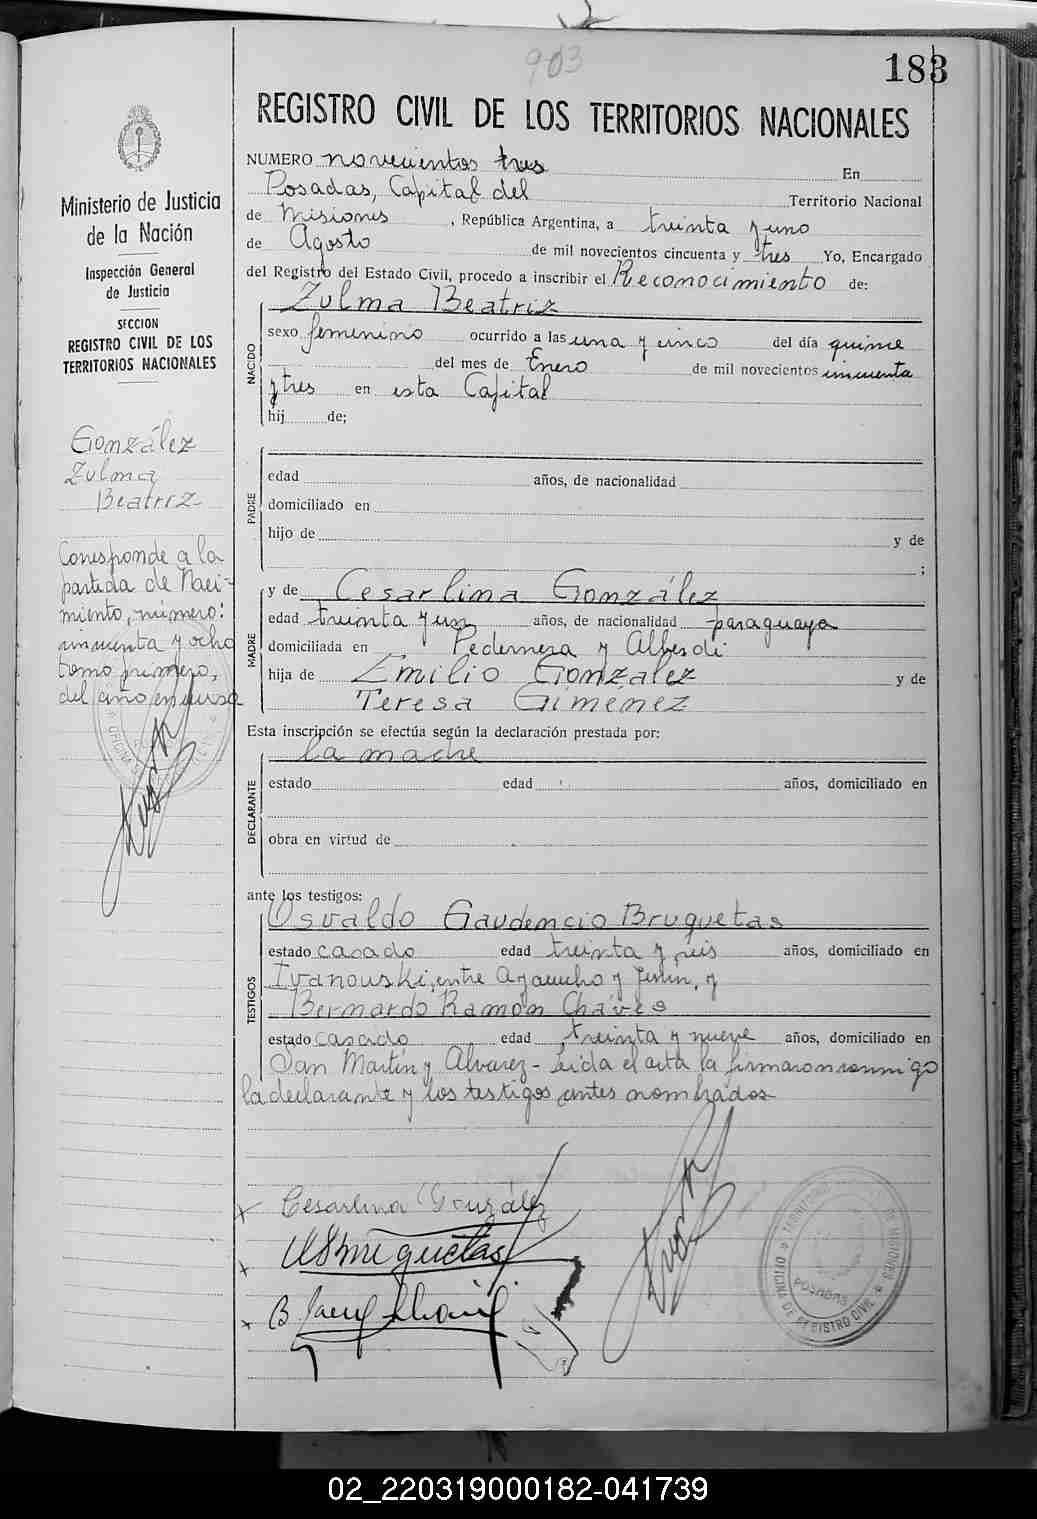 903
183
REGISTRO CIVIL DE LOS TERRITORIOS NACIONALES
NUMERO novecientos tres En
Posadas, Capital del Territorio Nacional
de Misiones, República Argentina, a treinta y uno
de Agosto de mil novecientos cincuenta y tres Yo, Encargado
del Registro del Estado Civil, procedo a inscribir el Reconocimiento de:
NACIDO
Zulma Beatriz
sexo femenino ocurrido a las una y cinco del día quince
del mes de Enero de mil novecientos cincuenta
y tres en esta Capital
hij de;
PADRE
edad años, de nacionalidad
domiciliado en
hijo de y de
;
MADRE
y de Cesarlina González
edad treinta y un años, de nacionalidad paraguaya
domiciliada en Pedernera y Alberdi
hija de Emilio González y de
Teresa Giménez
Esta inscripción se efectúa según la declaración prestada por:
la madre
DECLARANTE
estado edad años, domiciliado en
obra en virtud de
ante los testigos:
TESTIGOS
Osvaldo Gaudencio Bruquetas
estado casado edad treinta y seis años, domiciliado en
Ivanouski, entre Ayacucho y Junín, y
Bernardo Ramón Cháves
estado casado edad treinta y nueve años, domiciliado en
San Martín y Alvarez - Leida el acta la firmaron conmigo
la declarante y los testigos antes nombrados
Cesarlina González
POSADAS
OFICINA DE REGISTRO CIVIL
Ministerio de Justicia
de la Nación
Inspección General
de Justicia
SECCION
REGISTRO CIVIL DE LOS
TERRITORIOS NACIONALES
González
Zulma
Beatriz
Corresponde a la
partida de Naci-
miento, número:
cincuenta y ocho
tomo primero,
del año en curso
02_220319000182-041739